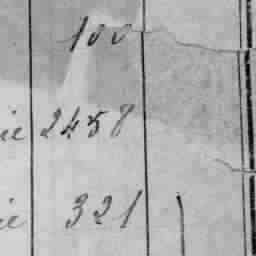 100
ie 2458
ie 321